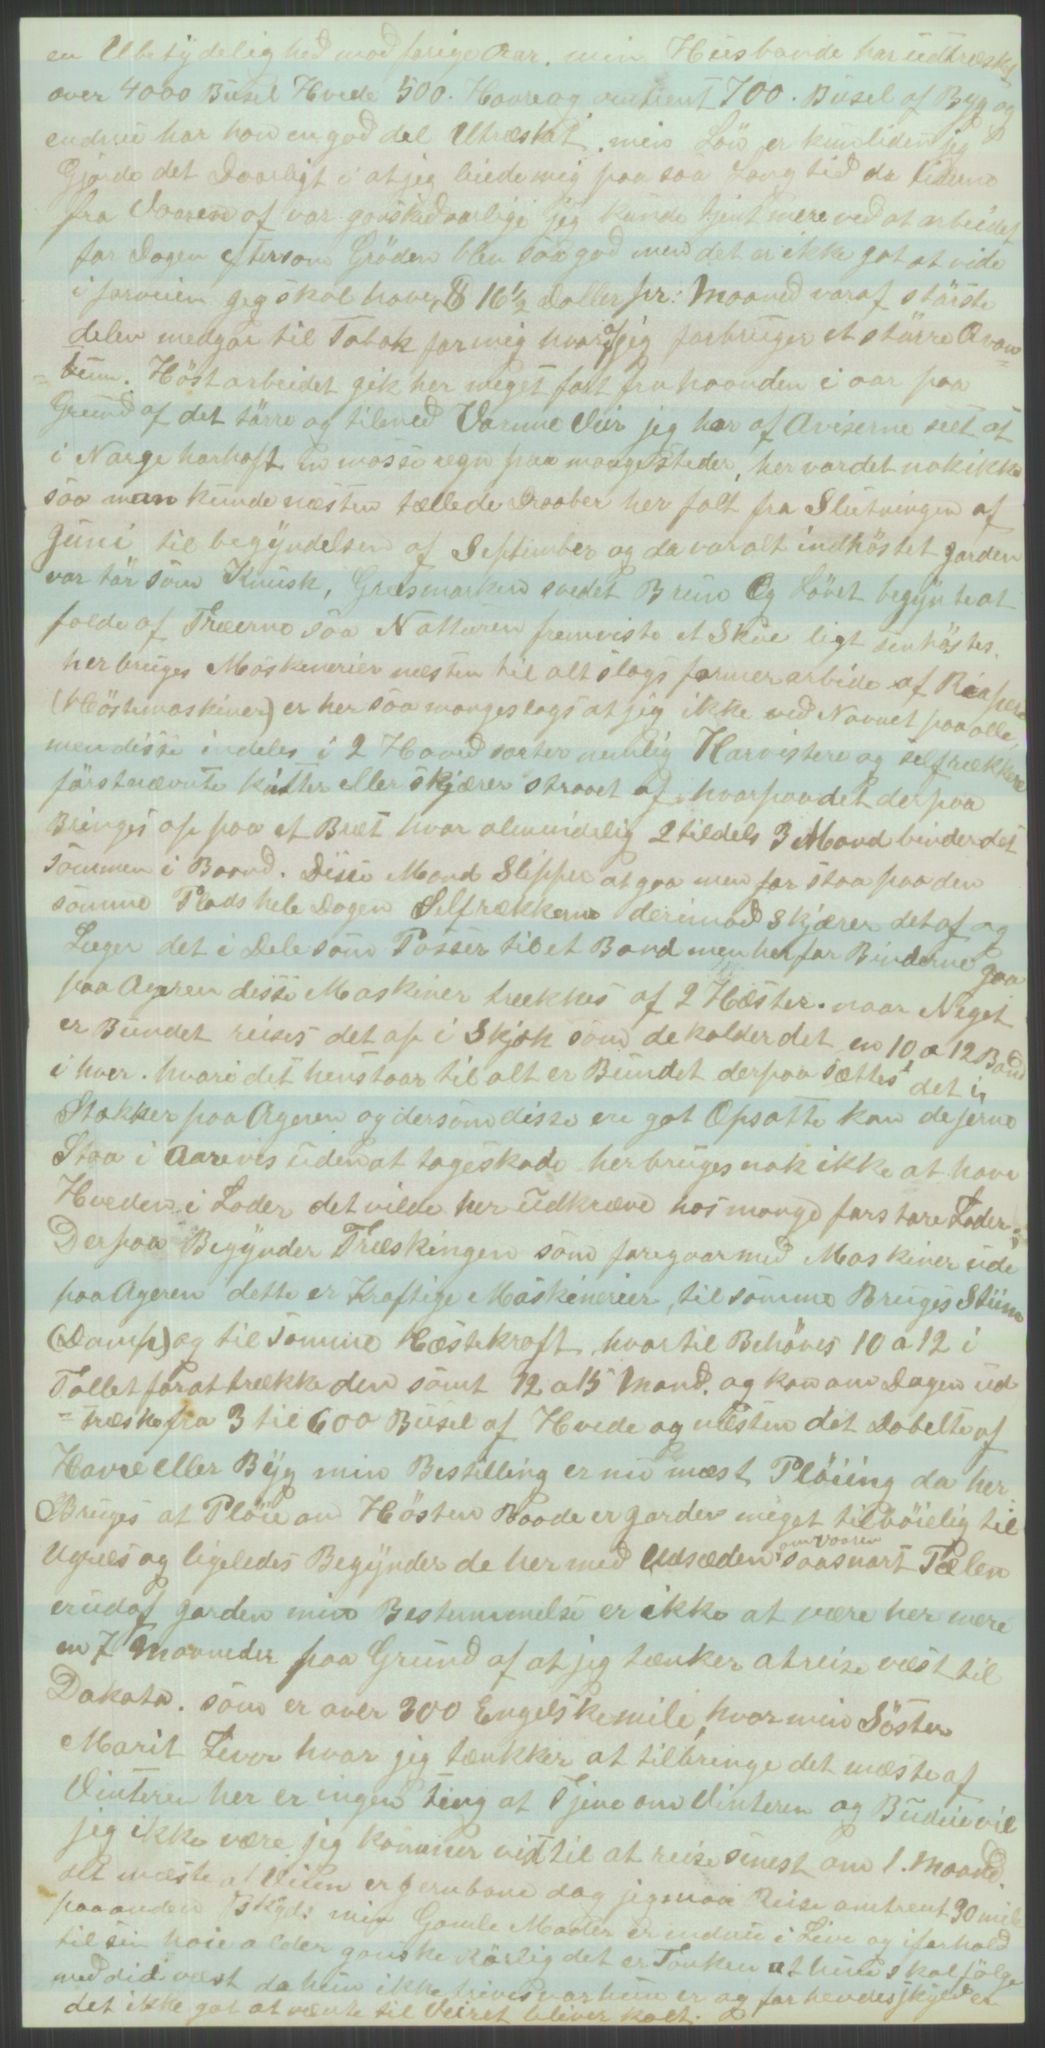 en Ubetydelighed mod forige Aar. min Husbande har udtræsket
over 4000 Busel Hvede 500. Havre og omtrent 700. Busel af Byg og
endnu har han en god del Utræsket. min Lön er kun liden jeg
Gjorde det Daarligt i at jeg leiede mig paa saa Lang tid da tiderne
fra Vaaren af var ganske daarlige jeg kunde tjent mere ved at arbeidet
for Dagen eftersom Gröden blev saa god men det er ikke got at vide
i forveien jeg skal have $ 16½ Daller pr: Maaned varaf störste
delen medgar til Tobak for mig hvoraf jeg forbruger et större Qvan=
=tum. Höstarbeidet gik her meget fort fra haanden i aar paa
Grund af det törre og tilmed Varme Veir jeg har af Aviserne seet at
i Norge har haft en masse regn paa mange steder, her var det nok ikke
saa man kunde næsten tællede Draaber her falt fra Slutningen af
Juni til begyndelsen af September og da var alt indhöstet jorden
var tör som Knusk, Græsmarken svedet Brun Og Lövet begynte at
falde af Træerne saa Natturen fremviste et Skue ligt senhöstes.
her bruges Maskinerier næsten til alt slags farmer arbide af Reapere
(Höstmaskiner) er her saa mange slags at jeg ikke ved Navnet paa alle,
men disse indeles i 2 Hoved sorter nemlig Harvistere og selfrækkere
förstnævnte kutter eller skjærer straaet af, hvorpaa det derpaa
Bringes op paa et Bræt hvor almindelig 2 tildels 3 Mand binder det
sammen i Baand. Disse Mand Slipper at gaa men for staa paa den
samme Plads hele Dagen Selfrækkerne derimod skjærer det af og
Læger det i Dele som Passer til et Band men her for Binderne gaa
paa Ageren disse Maskiner trækkes af 2 Hæster. naar Neget
er Bundet reises det op i Skjok som de kalder det en 10 a 12 Band
i hver. hvori det henstaar til alt er Bundet derpaa sættes det i
Stakker paa Ageren og dersom disse ere got Opsatte kan de jerne
Staa i Aarevis uden at tage skade her bruges nok ikke at have
Hveden i Loder det vilde her udkræve hos mange fors tore Loder.
Derpaa Begynder Træskingen som foregaar med Maskiner ude
paa Ageren dette er Kraftige Maskinerier, til somme Bruges Stiim
(Damp) og til somme Hæstekraft hvortil Behöves 10 a 12 i
Tallet for at trække den samt 12 a 15 Mand. og kan om Dagen ud
=træske fra 3 til 600 Busel af Hvede og næsten det Dobelte af
Havre eller Byg min Bestilling er nu mæst Plöiing da her
Bruges at Plöie om Hösten Baade er jorden meget tilböielig til
Ugræs og ligeledes Begynder de her med Udsæden om Vaaren saasnart Tælen
er udaf jorden min Bestemmelse er ikke at være her mere
en 7 Maaneder paa Grund af at jeg tænker at reise væst til
Dakota. som er over 300 Engelske mile, hvor min Söster
Marit Lever hvor jeg tænkker at tilbringe det mæste af
Vinteren her er ingen ting at Tjene om Vinteren og Buduie vil
jeg ikke være jeg kommer vist til at reise senest om 1. Maaned.
det mæste af Veien er jernbane dog jeg maa Reise omtrent 30 mile
paa anden Skyd: min Gamle Moder er endnu i Live og i forhold
til sin høie alder ganske Karlig det er Tanken at hun skal fölge
med did væst da hun ikke trives var hun er og for hendes skyld er
det ikke got at vænte til Veiret bliver kolt.